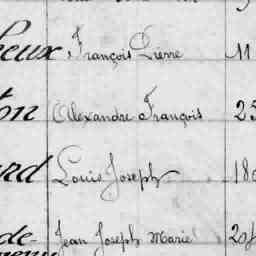 eux, François Pierre 11
ton Alexandre François 25
ard Louis Joseph 18
de- Jean Joseph Marie